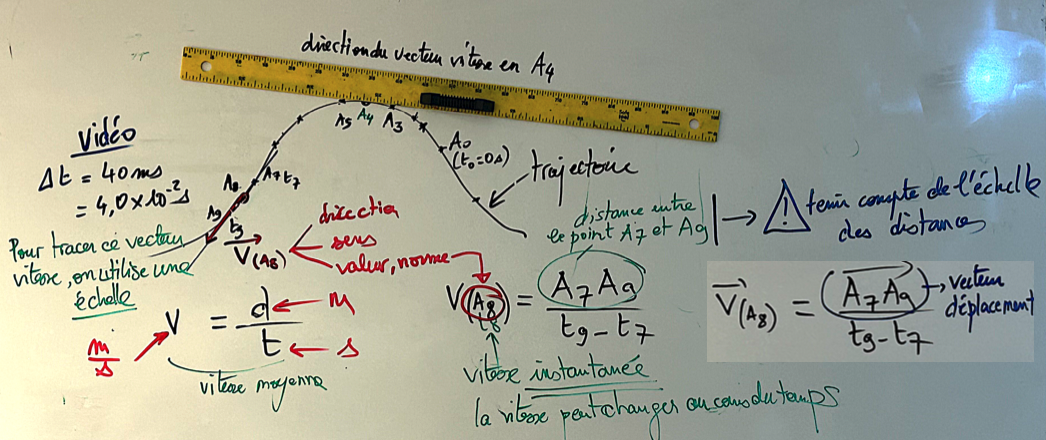 direction du vecteur vitesse en A4
Vidéo
Δt = 40 ms
= 4,0 × 10⁻² s
A5 A4 A3
A0
(t0 = 0 s)
trajectoire
A7 t7
A8
A9
t9
V⃗(A8)
direction
sens
valeur, norme
Pour tracer ce vecteur
vitesse, on utilise une
échelle
distance entre
le point A7 et A9
→ ! tenir compte de l'échelle
des distances
V = d/t
m
s
m/s
vitesse moyenne
V(A8) = A7A9/(t9 - t7)
t8
vitesse instantanée
la vitesse peut changer au cours du temps
V⃗(A8) = (A7A9)⃗/(t9 - t7)
vecteur
déplacement